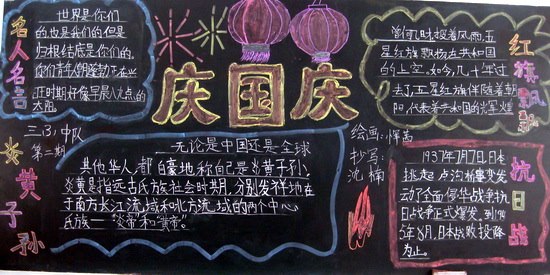 庆国庆
名人名言
世界是你们
的也是我们的但是
归根结底是你们的。
你们青年人朝气蓬勃正在兴
旺时期好像早晨八九点的
太阳。
三.(3)中队
第二期
炎黄子孙
无论是中国还是全球
其他华人,都自豪地称自己是炎黄子孙
炎黄是指远古氏族社会时期,分别发祥地在
于南方长江流域和北方流域的两个中心
氏族——“炎帝”和“黄帝”。
绘画:恽茜
抄写:
沈楠
红旗飘飘
曾何几时,披着风雨,五
星红旗飘扬在共和国
的上空。如今,几十年过
去了,五星红旗伴随着朝
阳,代表着共和国的光辉
抗日战
1937年7月7日,日本
挑起卢沟桥事变发
动了全面侵华战争,抗
日战争正式爆发,到194
5年8月,日本战败投降
为止。